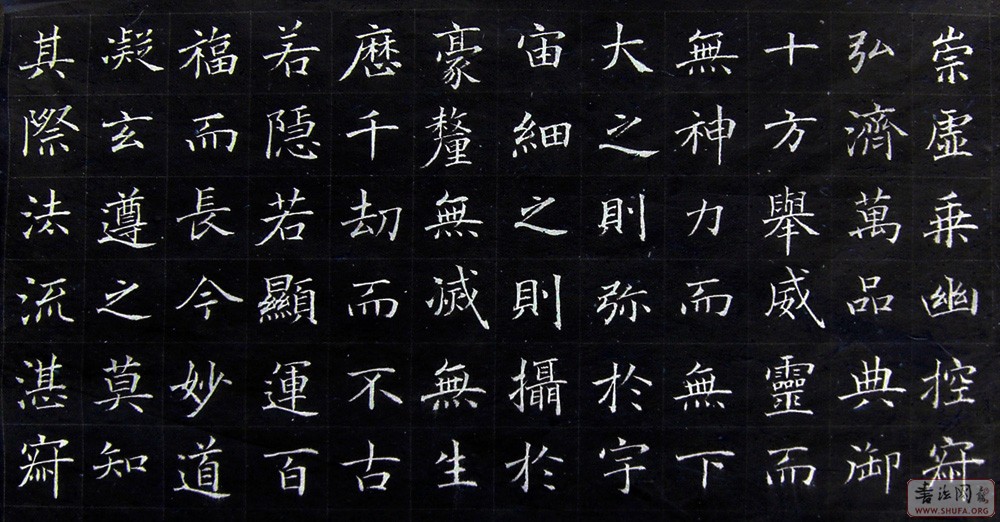 崇虛乗幽控𡧯
弘濟萬品典御
十方舉威靈而
無神力而無下
大之則弥於宇
宙細之則攝於
豪釐無滅無生
歷千劫而不古
若隱若顯運百
福而長今妙道
凝玄遵之莫知
其際法流湛𡧯
書法网
WWW.SHUFA.ORG